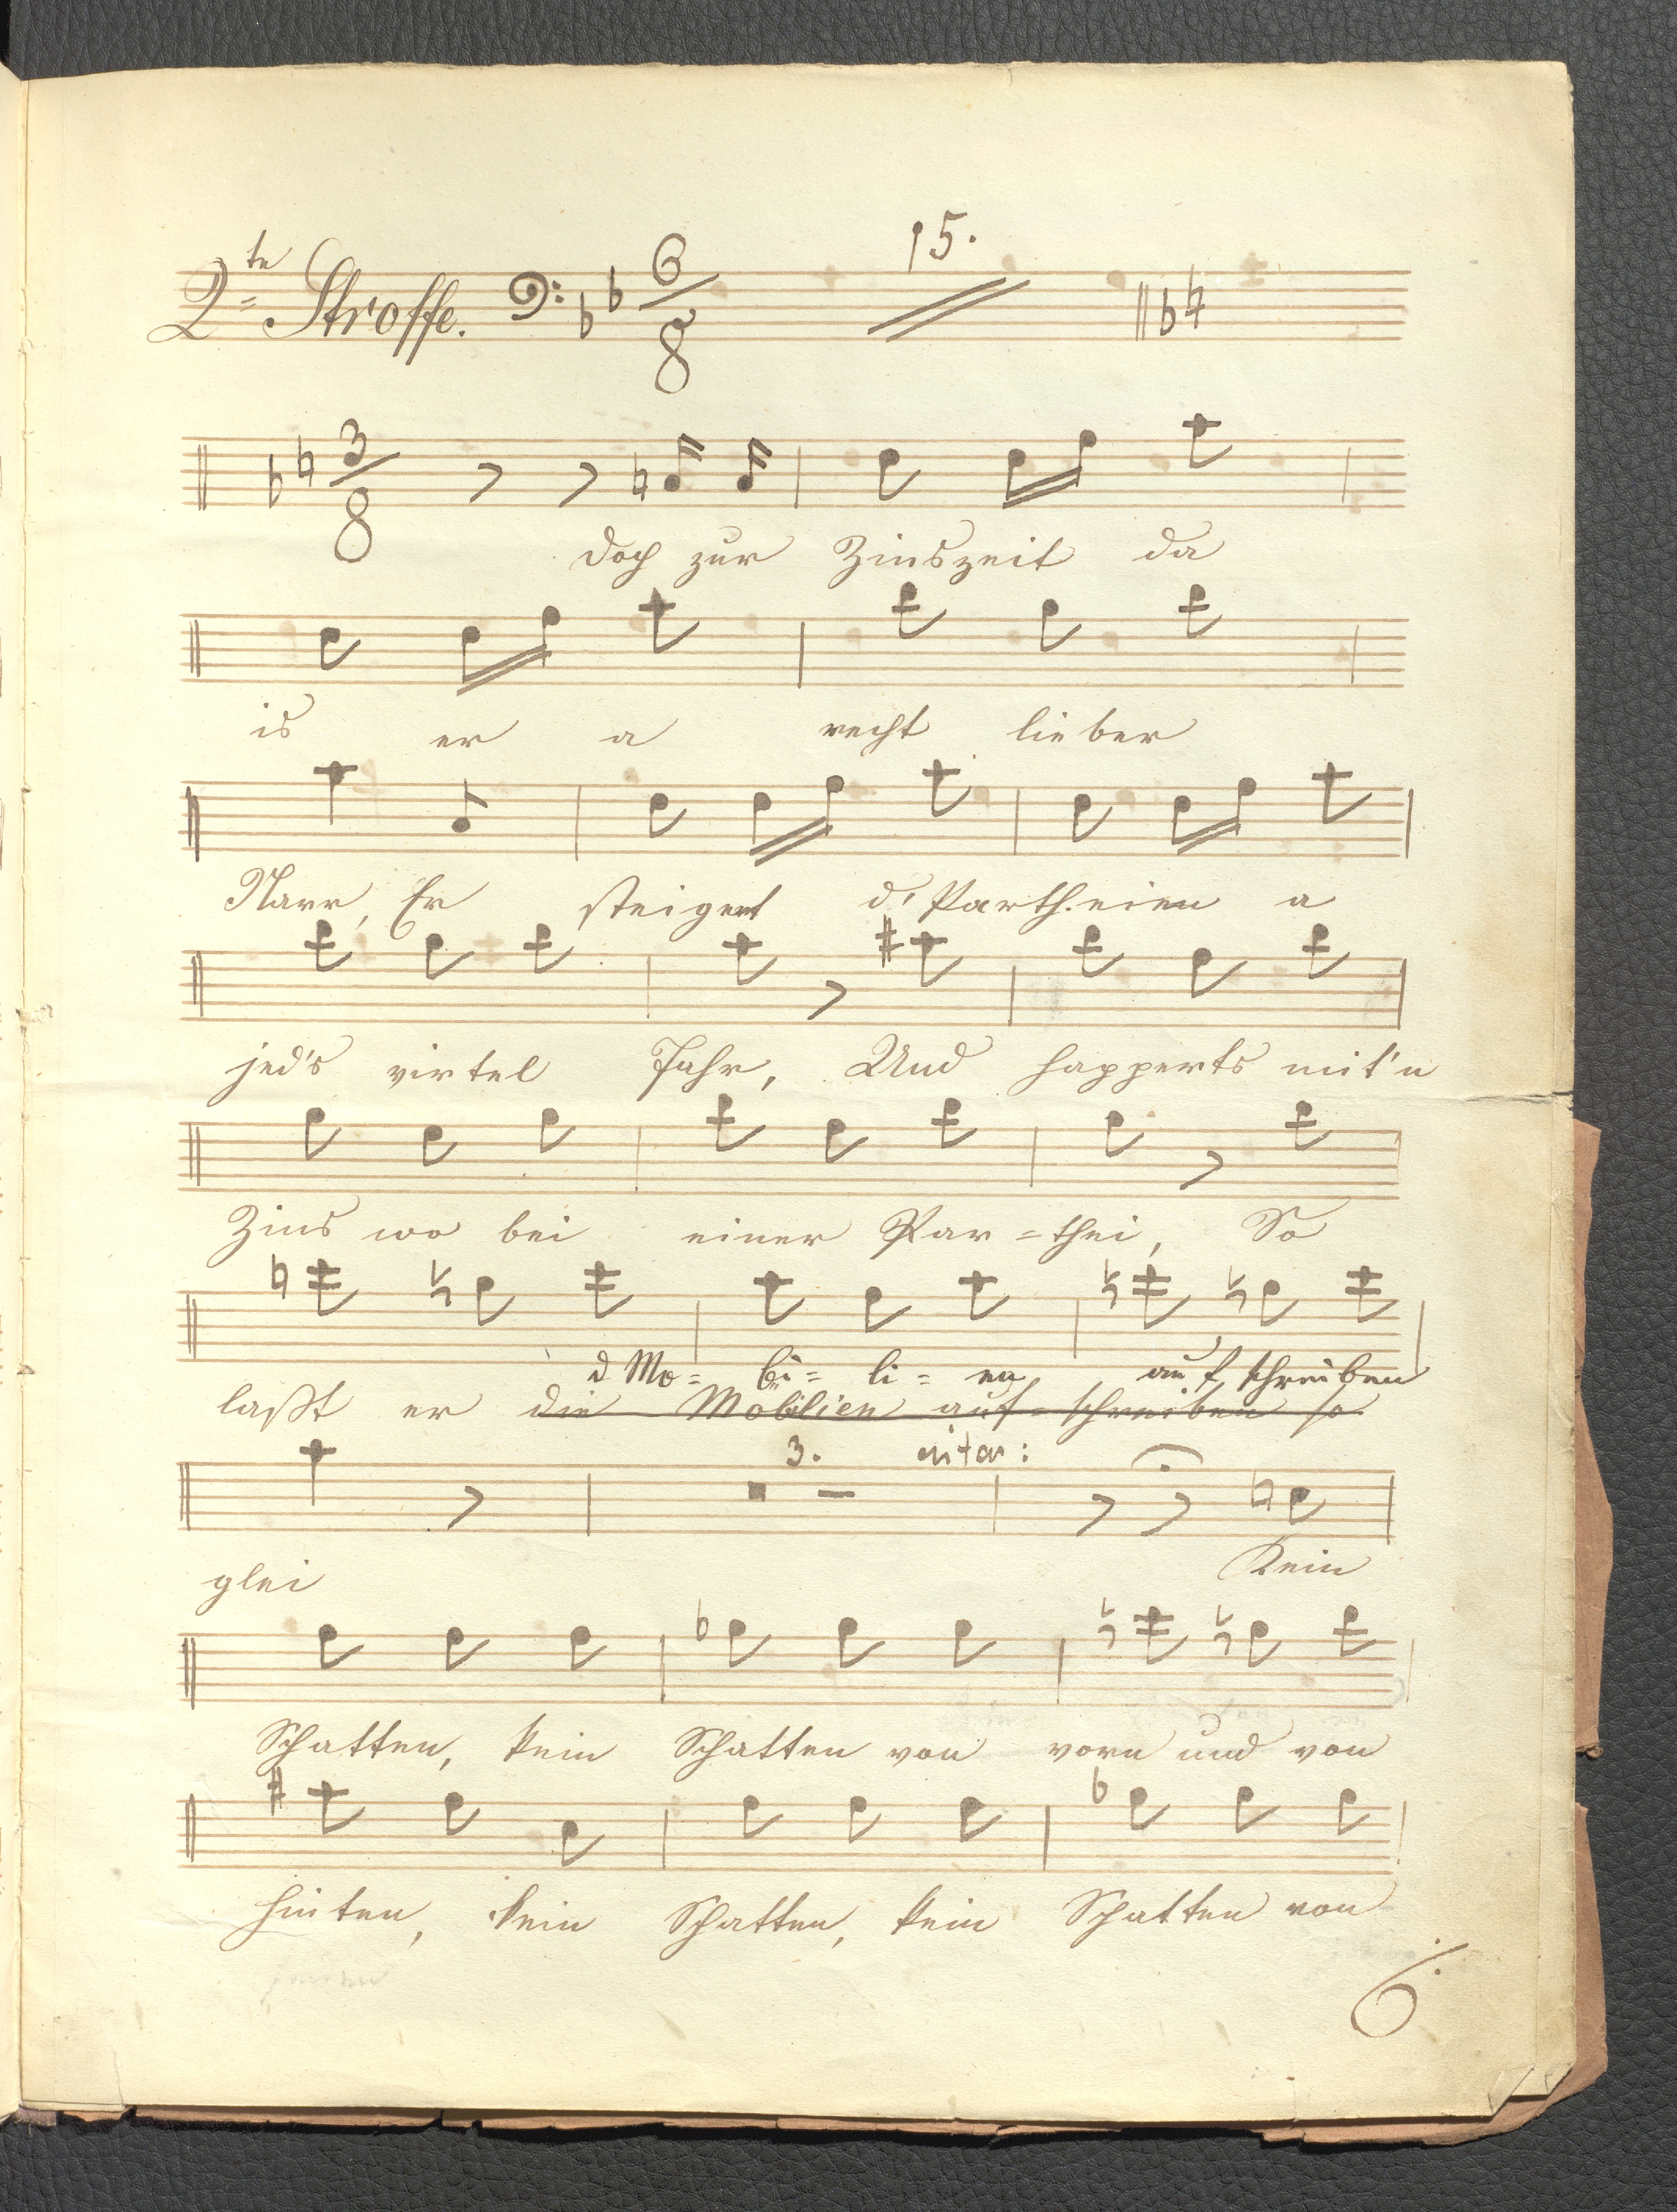 2te Stroffe. 6/8 15.
3/8
doch zur Zinszeit da
is er a recht lieber
Narr, Er steigert d' Partheien a
jed's virtel Jahr, Und happerts mit'n
Zins wo bei einer Par=thei, So
d Mo= bi= li= en auf schreiben
laßt er die Mobilien auf=schreiben so
3.
glei Kein
Schatten, kein Schatten von vorn und von
hinten, kein Schatten, kein Schatten von
6